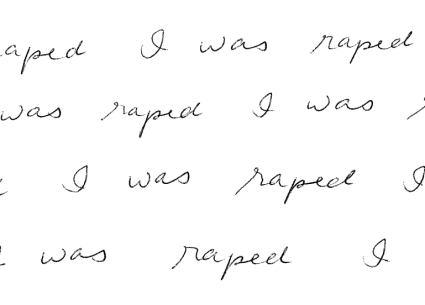 raped I was raped
was raped I was
I was raped I
was raped I